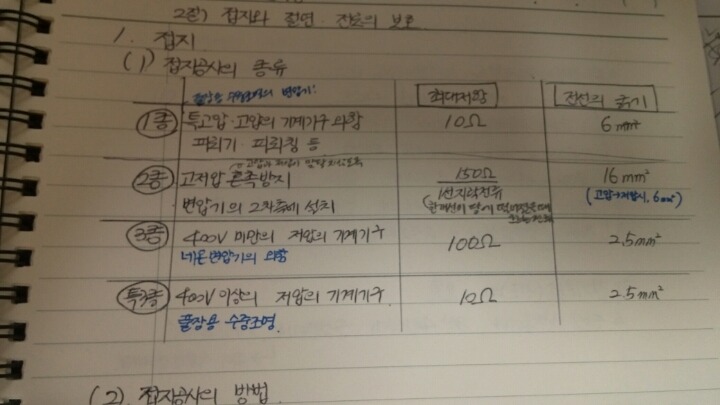 2절) 접지와 절연·전로의 보호
1. 접지
(1) 접지공사의 종류
풀장용 수중조명의 변압기! 최대저항 전선의 굵기
1종 특고압·고압의 기계기구 외함 10Ω 6mm²
피뢰기·피뢰침 등
고압과 저압이 않도록
2종 고저압 혼촉방지 150Ω 16mm²
변압기의 2차측에 설치 1선지락전류 (고압→저압시, 6mm²)
(한개선이 땅에 떨어졌을때
3종 400V 미만의 저압의 기계기구 100Ω 2.5mm²
네온변압기의 외함
특3종 400V 이상의 저압의 기계기구 10Ω 2.5mm²
풀장용 수중조명.
(2) 접지공사의 방법